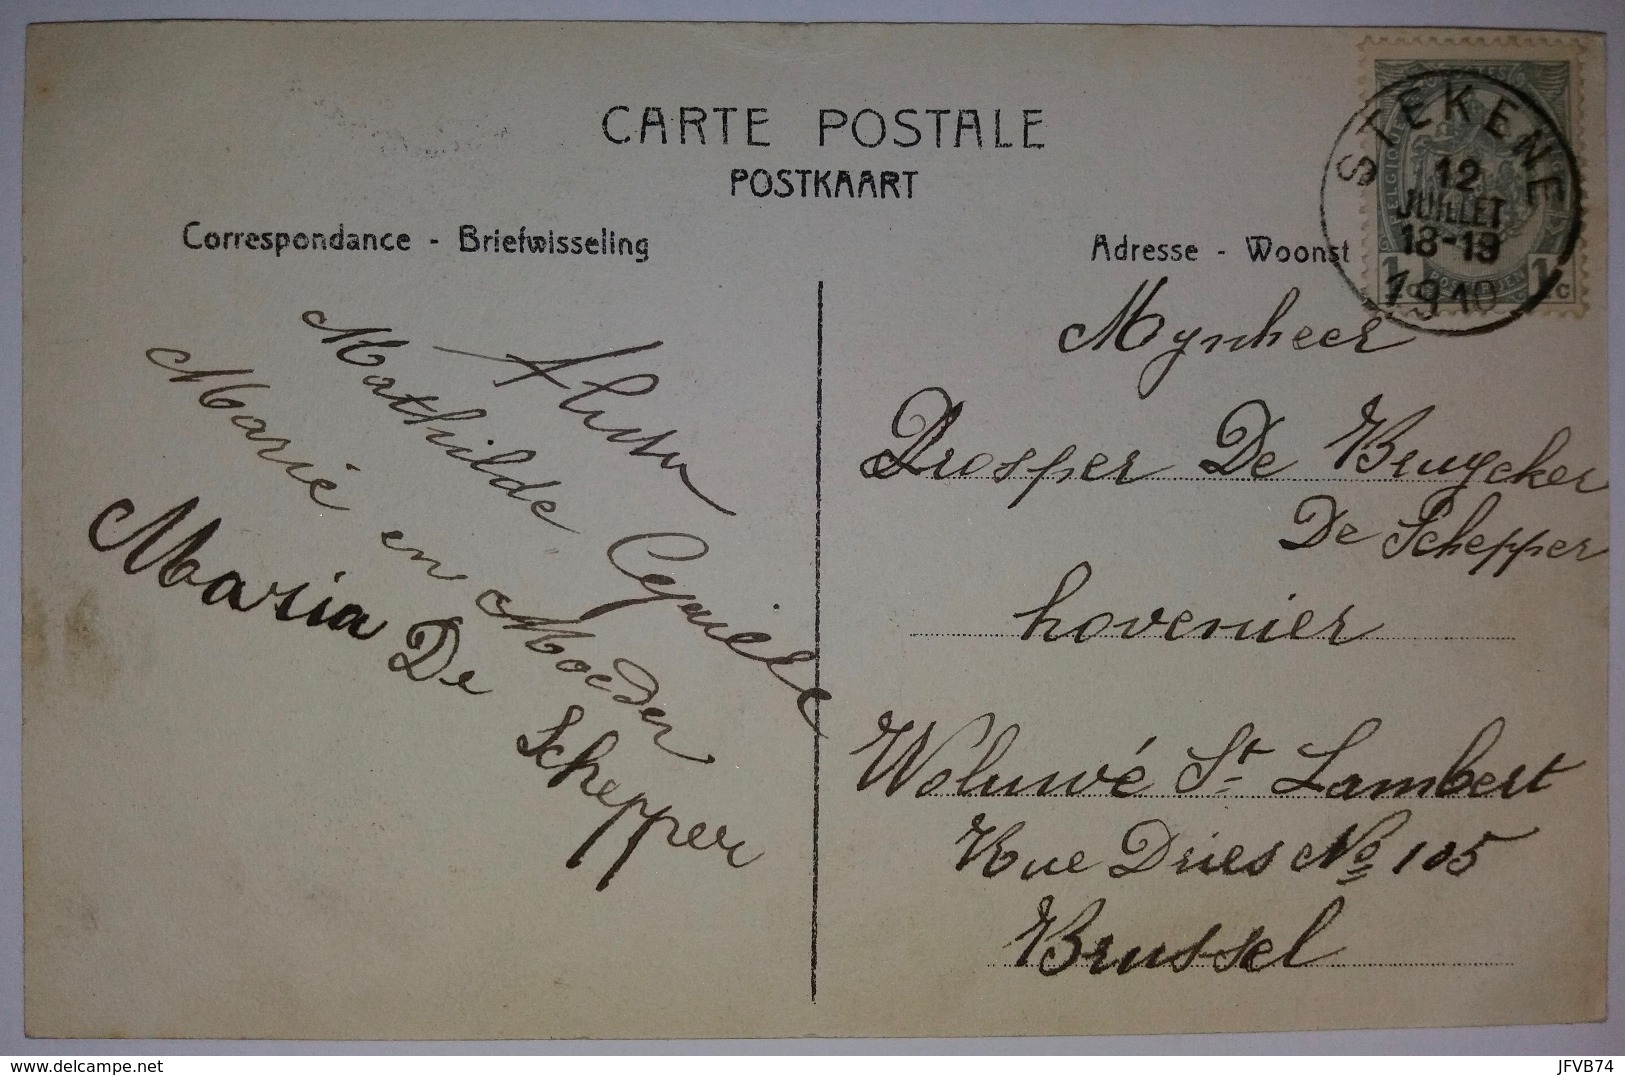 CARTE POSTALE
POSTKAART
Correspondance - Briefwisseling
Adresse - Woonst
STEKENE
12
JUILLET
18-19
1910
1c 1c
Mathilde Cyrielle
Marie en Moeder
Maria De Schepper
Mynheer
Prosper De Bruycker
De Schepper
hovenier
Woluwé St Lambert
Rue Dries No 105
Brussel
JFVB74